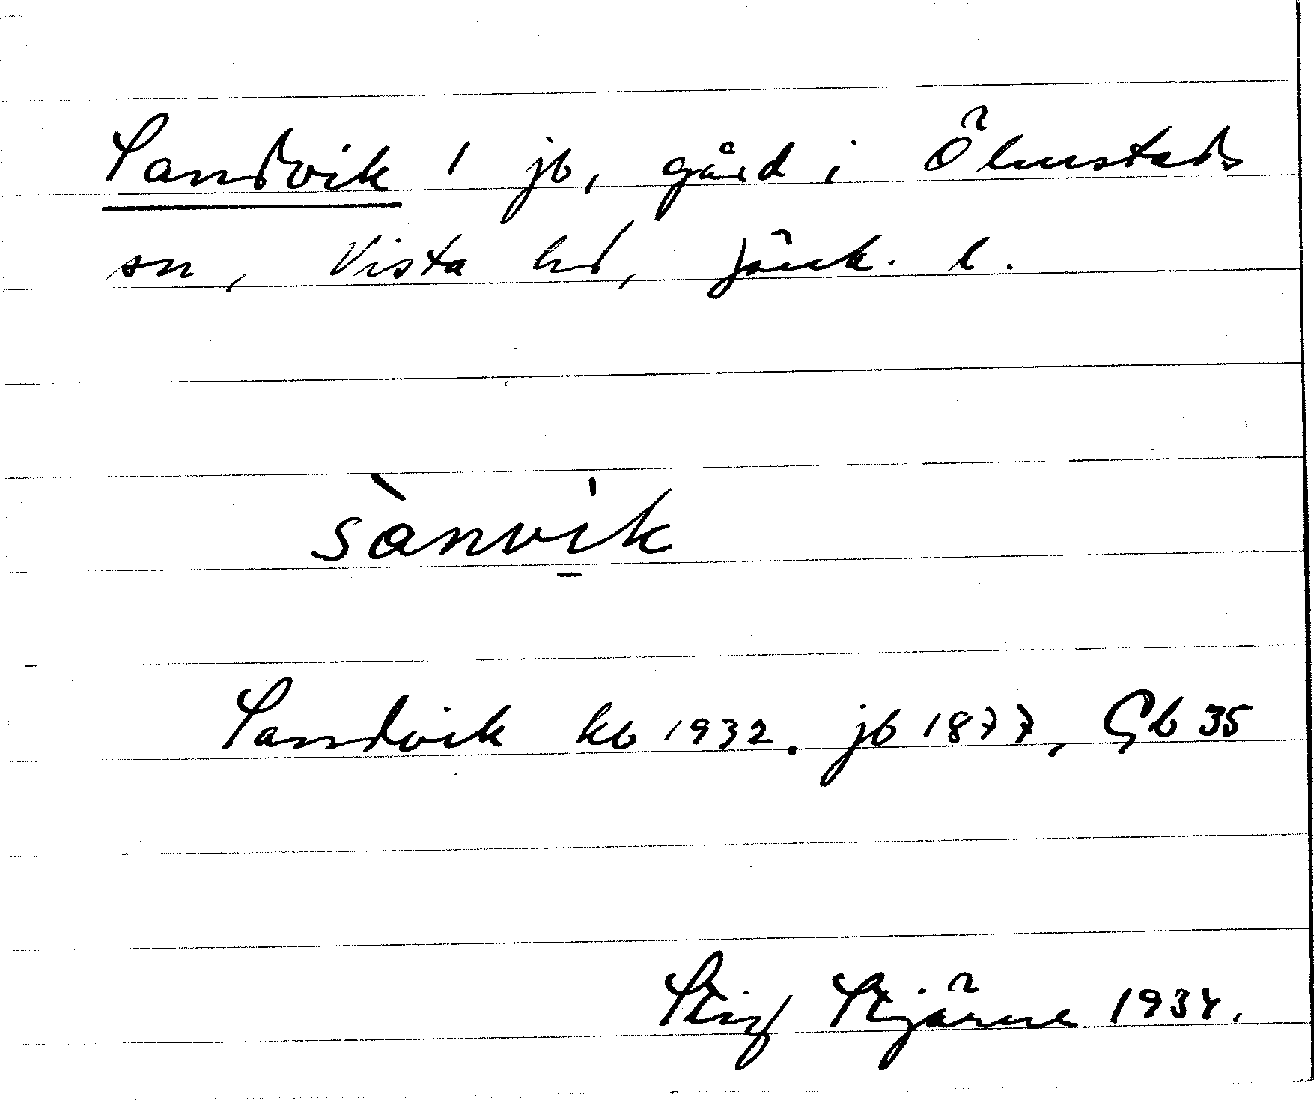 Sandvik 1 jb, gård i Ölmstads
sn, Vista hd, Jönk. l.
sànvik
Sandvik kb 1932. jb 1877, Gb 35
Stig Stjärne 1934.